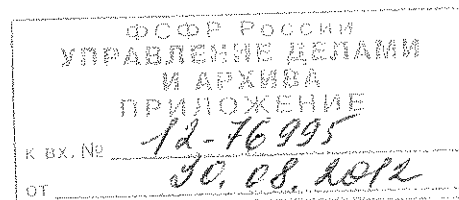 ФСФР РОССИИ
УПРАВЛЕНИЕ ДЕЛАМИ
И АРХИВА
ПРИЛОЖЕНИЕ
К ВХ. № 12-76995
ОТ 30.08.2012